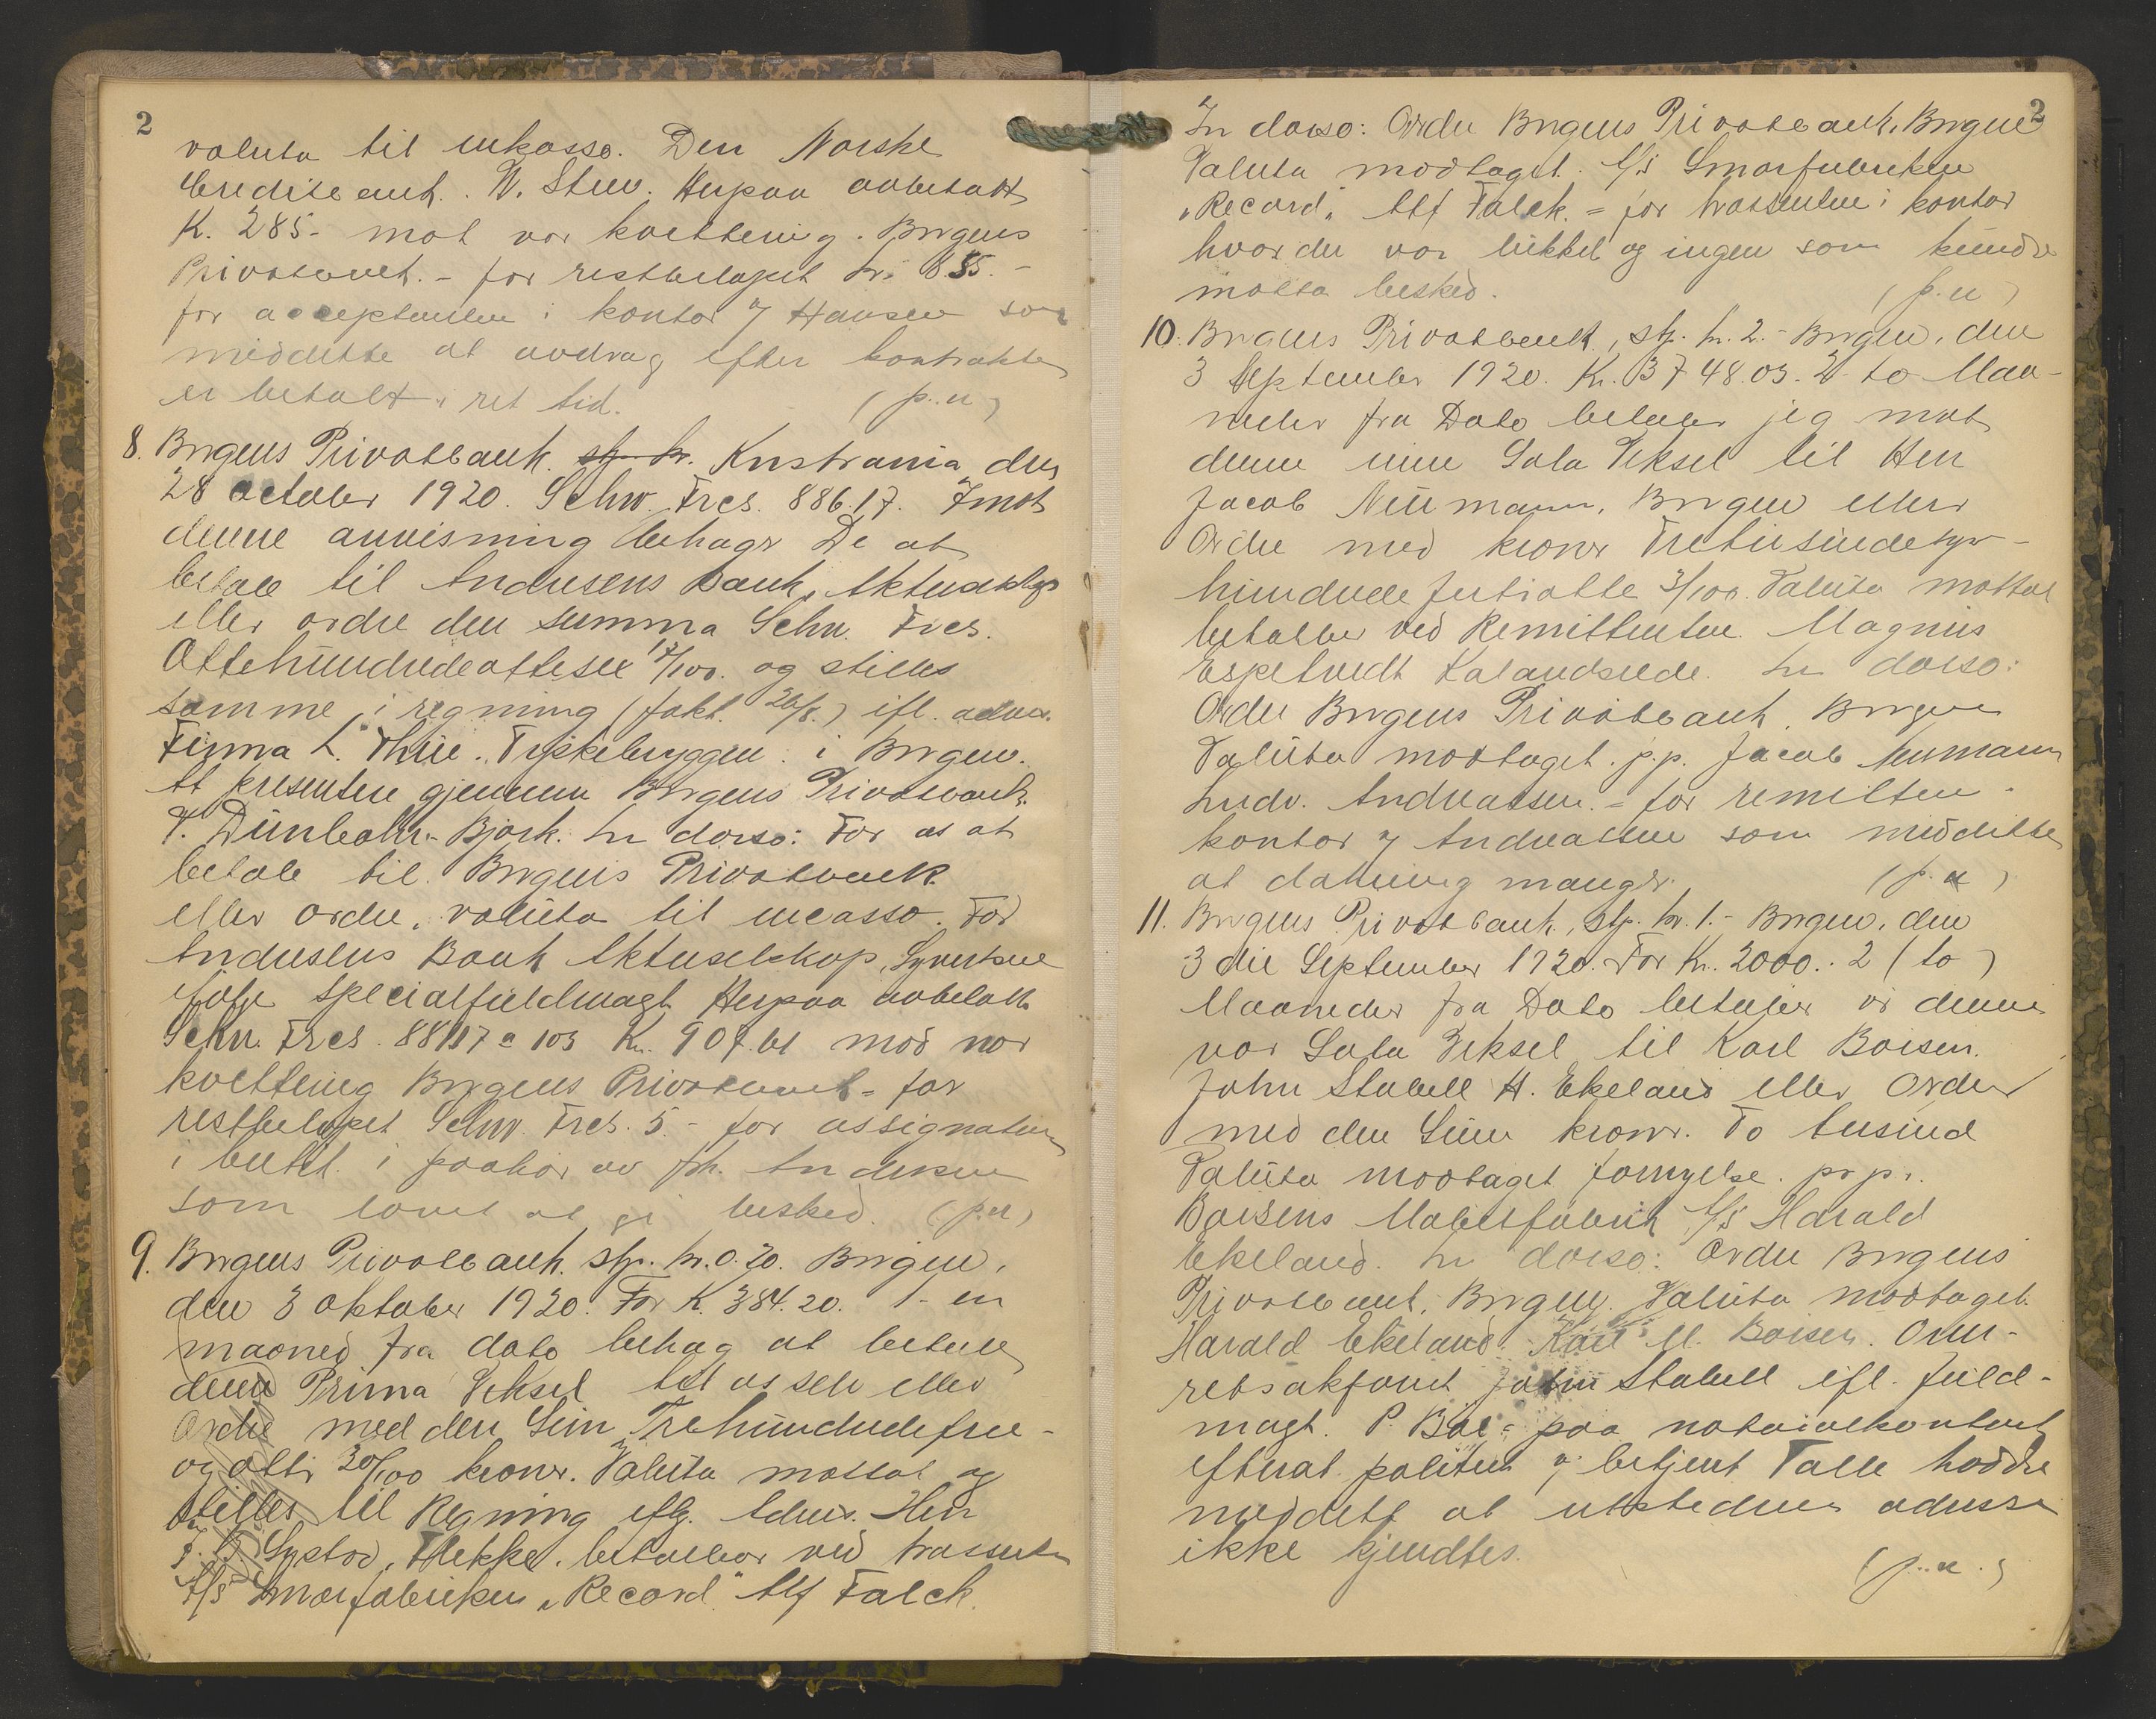 2
valuta til inkasso. Den Norske
Creditbank. N. Steen. Herpaa avbetalt
K. 285.- mot vor kvittering. Bergens
Privatbank. - for restbeløpet kr. 855.-
for acceptanten i kontor v/ Hansen som
meddelte at avdrag efter kontrakten
er betalt i ret tid. (p.u)
8. Bergens Privatbank. stp. kr. Kristiania den
28 october 1920. Schw. Frcs. 886.17. Imot
denne anvisning behager De at
betale til Andresens Bank, Aktieselskap
eller ordre den summa Schw. Frcs.
Ottehundredeottisex 17/100. og stilles
samme i regning (fakt. 26/8.) ifl. advis.
Firma L. Thue. Tyskebryggen i Bergen.
At presentere gjennem Bergens Privatbank.
Dünbohr-Bjork. In dorso: For os at
betale til Bergens Privatbank
eller ordre, valuta til incasso. For
Andresens Bank Aktieselskap, Syvertsen
ifølge specialfuldmagt Herpaa avbetalt
Schw. Frcs. 881.17 a 103 Kr. 907.61 mod vor
kvittering Bergens Privatbank - for
restbeløpet Schw. Frcs. 5.- for assignaten
i butik. i paahør av frk. Andersen
som lovet at gi besked. (p.u)
9. Bergens Privatbank. stp. kr. 0.20. Bergen,
den 3 oktober 1920. For K. 384.20. 1- en
maaned fra dato behag at betale
denne Prima Veksel til os selv eller
Ordre med den Sum Trehundredefire-
og otti 20/100 kroner. Valuta mottat og
stilles til Regning iflg. Advis. Herr
Systad, Flekke. betalbar ved trassenten
A/S Smørfabriken "Record" Alf Falck.
2
In dorso: Ordre Bergens Privatbank, Bergen
Valuta modtaget. A/S Smørfabriken
"Record" Alf Falck. = for trassenten i kontor
hvor der var lukket og ingen som kunde
motta besked. (p.u)
10. Bergens Privatbank, stp. kr. 2.- Bergen, den
3 September 1920. Kr. 3748.03. 2 to Maa-
neder fra Dato betaler jeg mot
denne min Sola Veksel til Herr
Jacob Neumann, Bergen eller
Ordre med kroner Tretusindesyv-
hundrede førtiotte 3/100. Valuta mottat
betalbar ved Remittenten. Magnus
Espetvedt Kalandseide. In dorso:
Ordre Bergens Privatbank, Bergen
Valuta modtaget. p.p. Jacob Neumann
Ludv. Andreassen. - for remitten.
kontor v/ Andreassen som meddelte
at dækning mangler. (p.u)
11. Bergens Privatbank, stp. kr. 1.- Bergen, den
3die September 1920. For Kr. 2000.. 2 (to)
Maaneder fra Dato betaler vi denne
vor Sola Veksel til Karl Boisen.
John Stabell H. Ekeland eller Ordre
med den Sum kroner. To tusind
Valuta modtaget fornyelse. pr pr.
Boisens Møbelfabrik A/S Harald
Ekeland. In dorso: Ordre Bergens
Privatbank, Bergen. Valuta modtaget.
Harald Ekeland. Karl M. Boisen. Over-
retssakfører John Stabell ifl. fuld-
magt. P. Bøe - paa notarialkontoret
efterat politiet v/ betjent Talle hadde
meddelt at utstederens adresse
ikke kjendtes.
(p.u.)